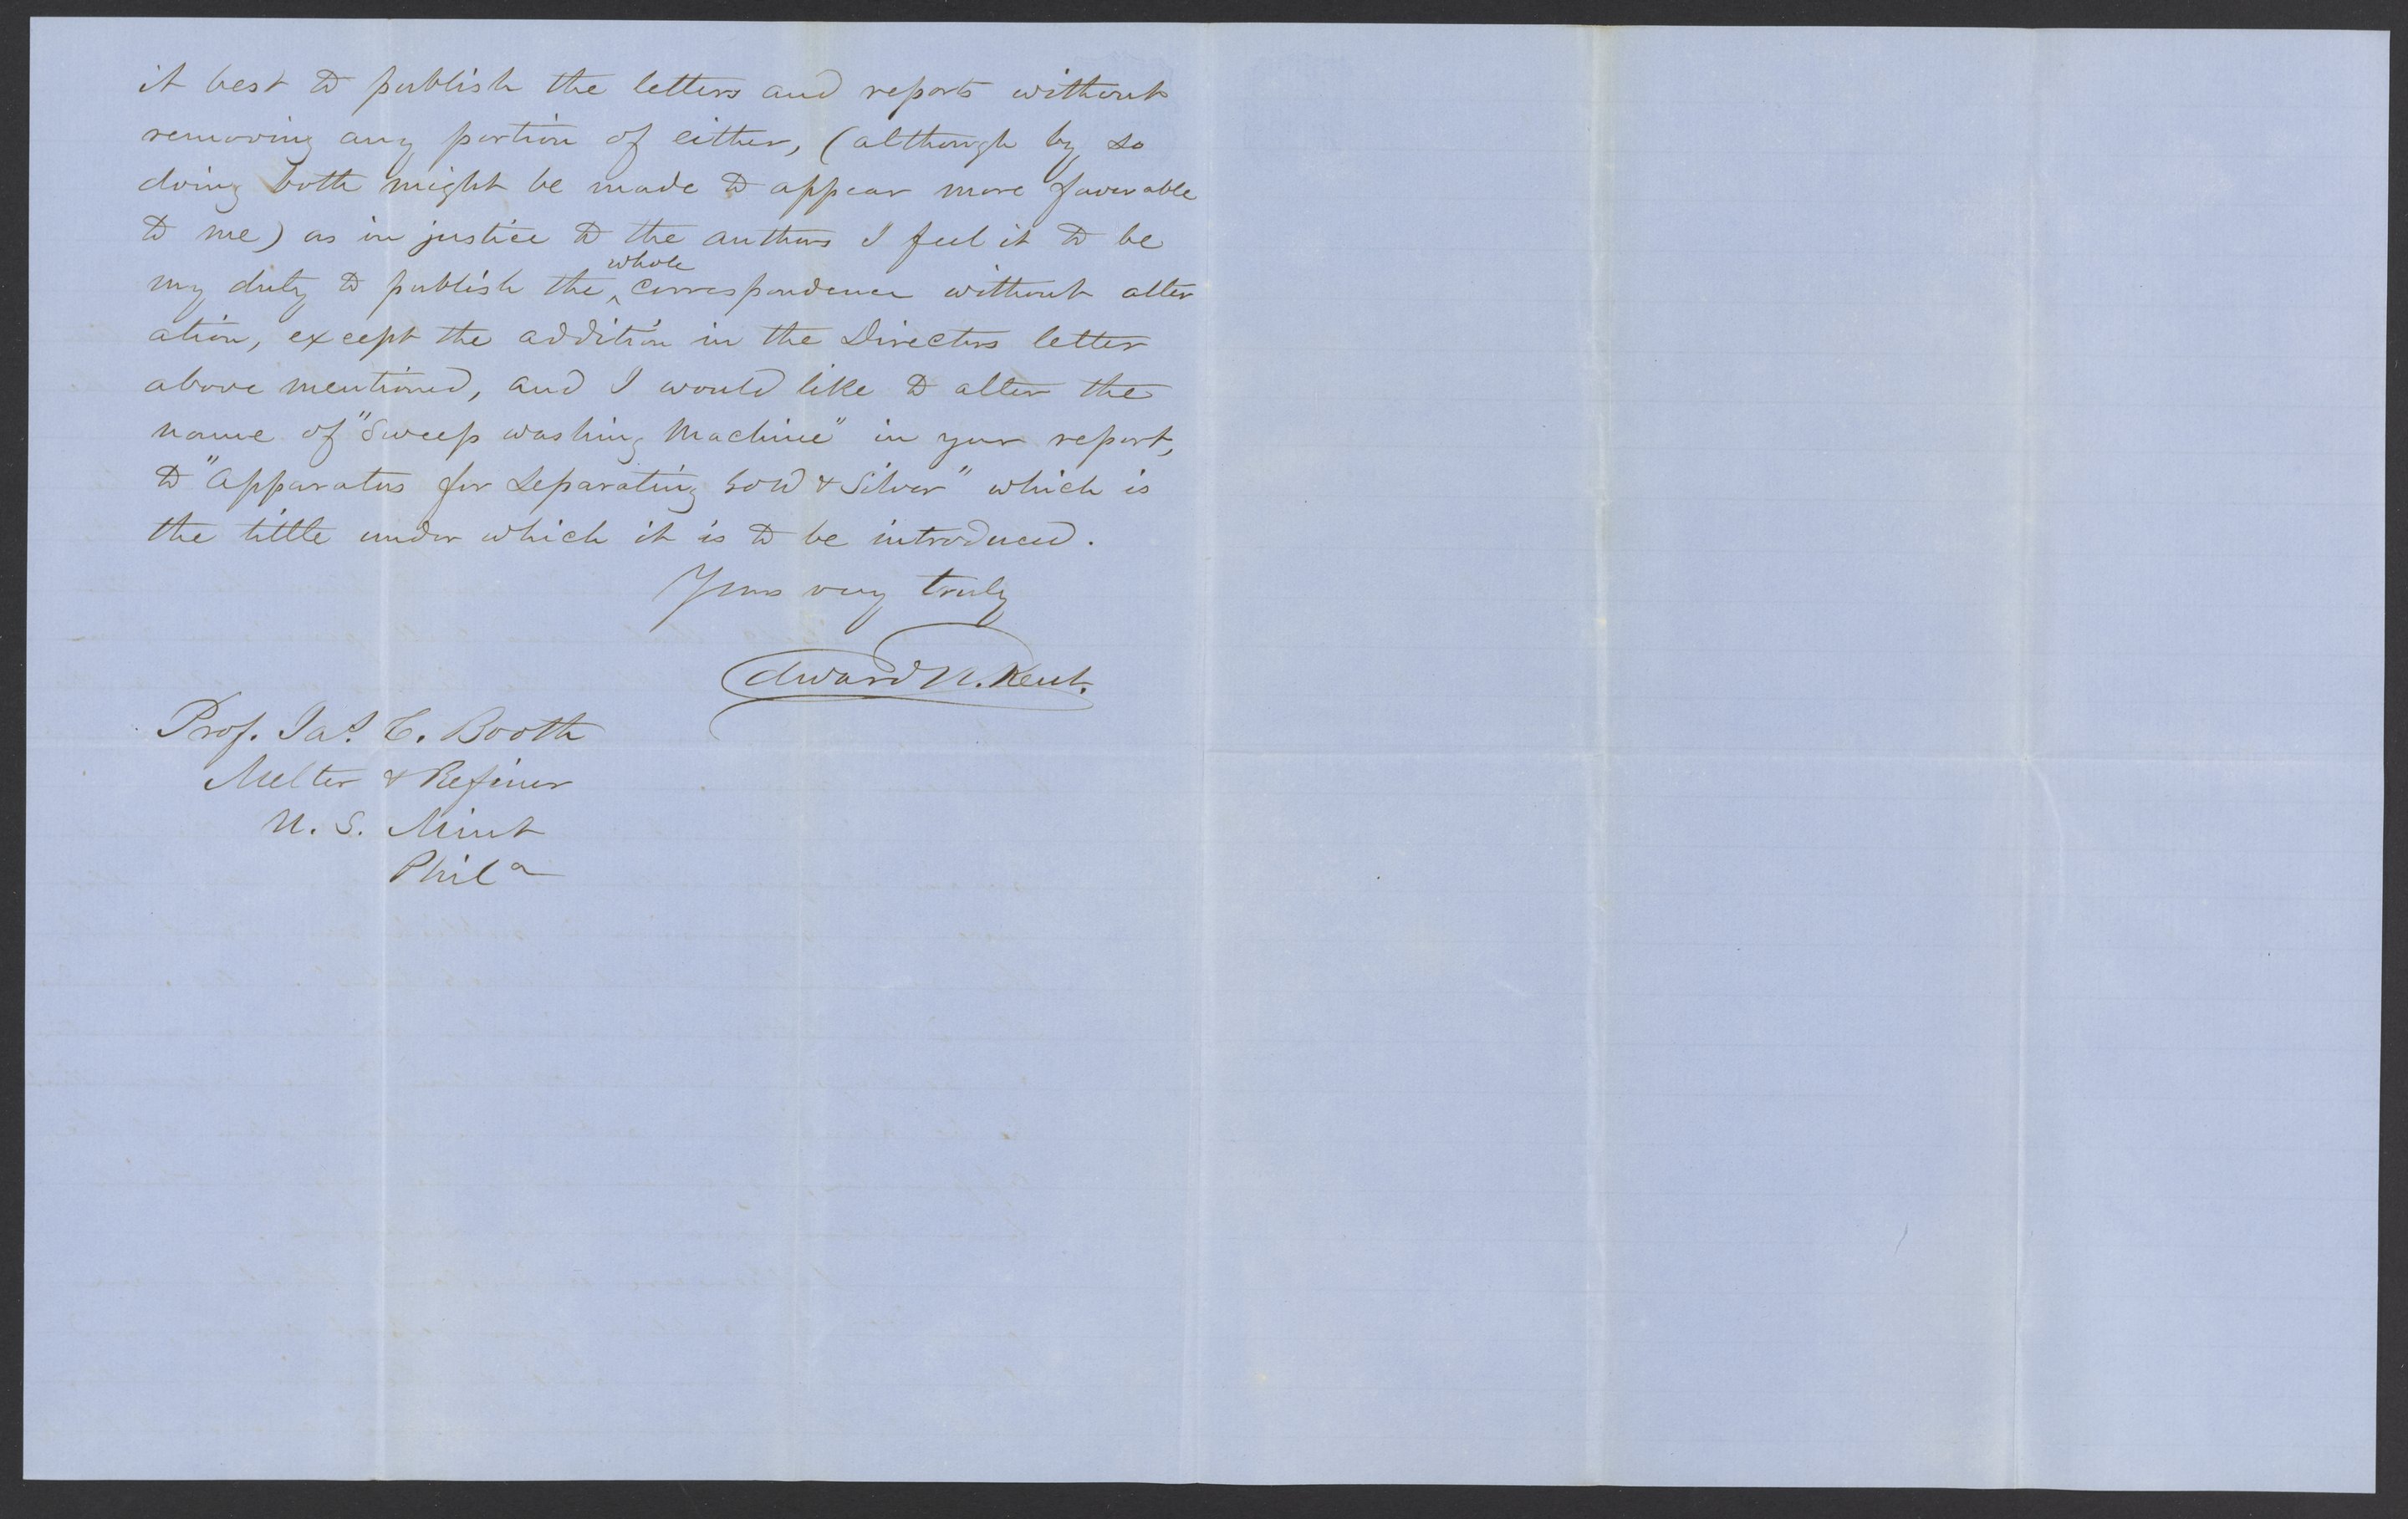 it best to publish the letters and reports without
removing any portion of either, (although by so
doing both might be made to appear more favorable
to me) as in justice to the authors I feel it to be
my duty to publish the whole correspondence without alter
ation, except the addition in the Directors letter
above mentioned, and I would like to alter the
name of "Sweep washing Machine" in your report,
to "Apparatus for Separating Gold & Silver" which is
the tittle under which it is to be introduced.
Yours very truly
Edward N. Kent.
Prof. Jas. C. Booth
Melter & Refiner
U. S. Mint
Phila